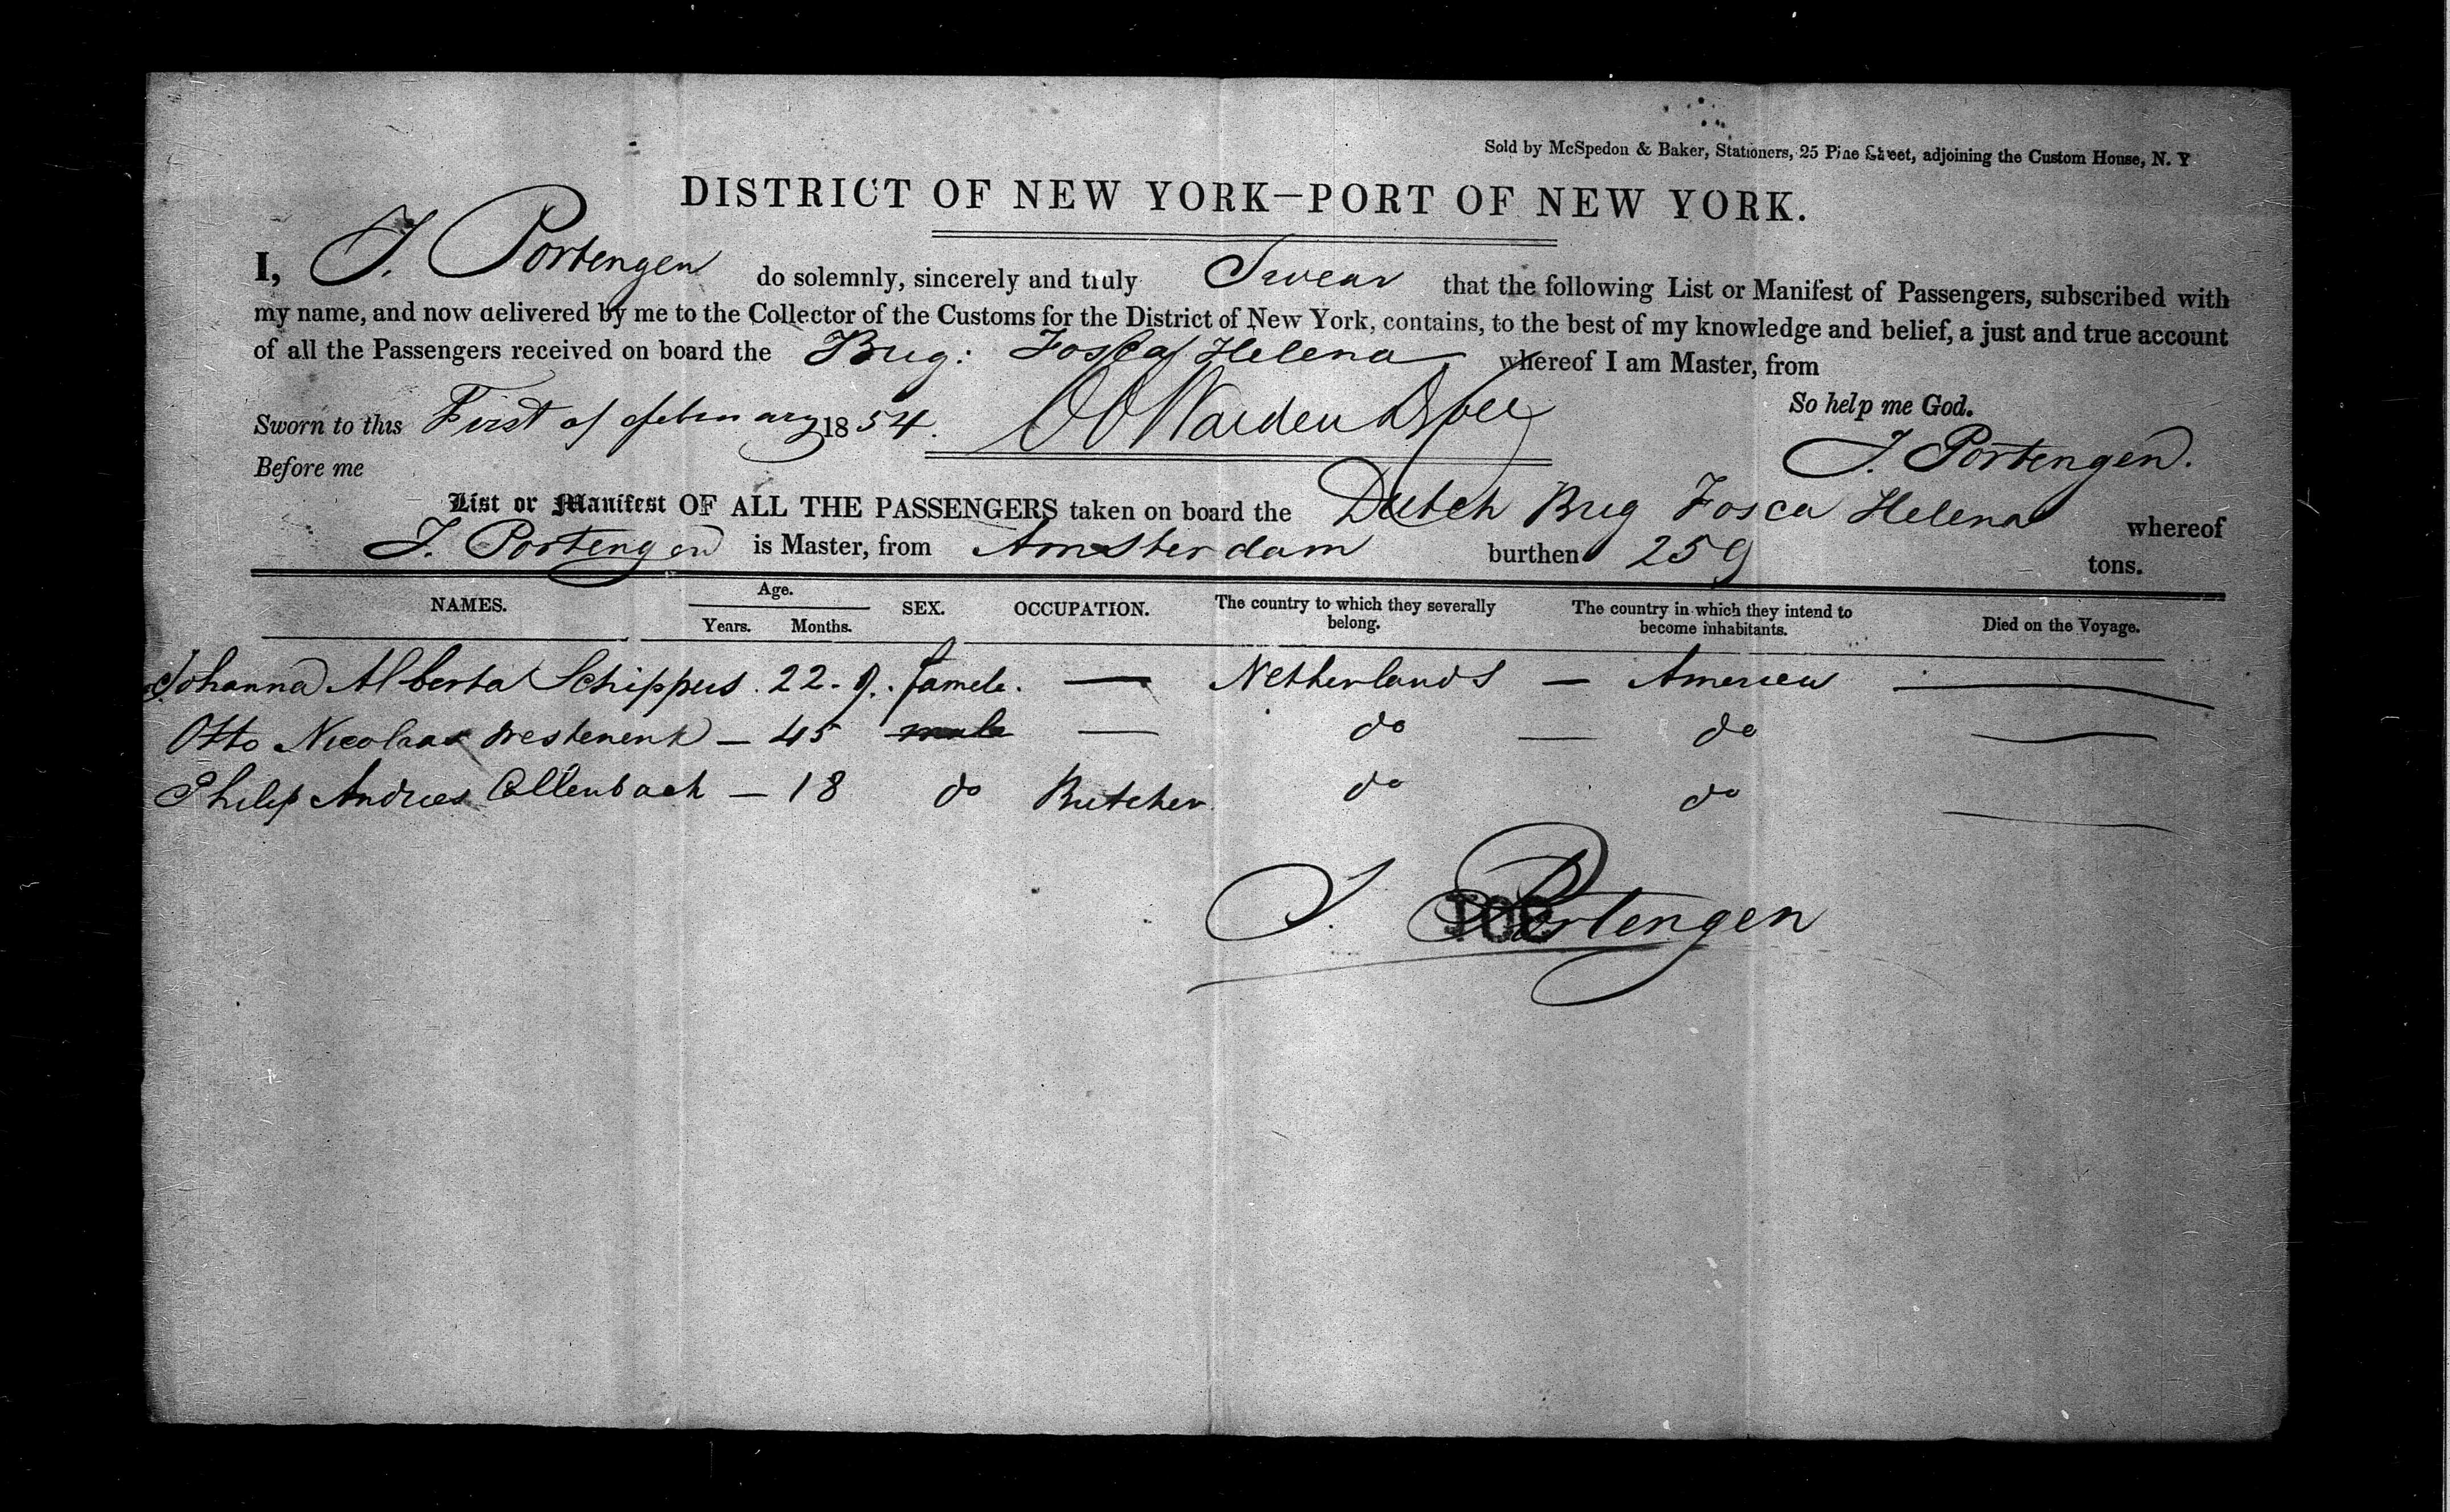 Sold by McSpedon & Baker, Stationers, 25 Pine Street, adjoining the Custom House, N. Y
DISTRICT OF NEW YORK—PORT OF NEW YORK.
I, J. Portengen do solemnly, sincerely and truly Swear that the following List or Manifest of Passengers, subscribed with
my name, and now delivered by me to the Collector of the Customs for the District of New York, contains, to the best of my knowledge and belief, a just and true account
of all the Passengers received on board the Brig: Fosca Helena whereof I am Master, from
So help me God.
Sworn to this First of February 1854.
J. Portengen.
Before me
List or Manifest OF ALL THE PASSENGERS taken on board the Dutch Brig Fosca Helena whereof
J. Portengen is Master, from Amsterdam burthen 259 tons.
NAMES. Age. Years. Months. SEX. OCCUPATION. The country to which they severally belong. The country in which they intend to become inhabitants. Died on the Voyage.
Johanna Alberta Schippers. 22 - 9. famele. — Netherlands — America —
Otto Nicolaas — 45 male — do — do —
Philip Andries — 18 do Butcher do do —
J. Portengen